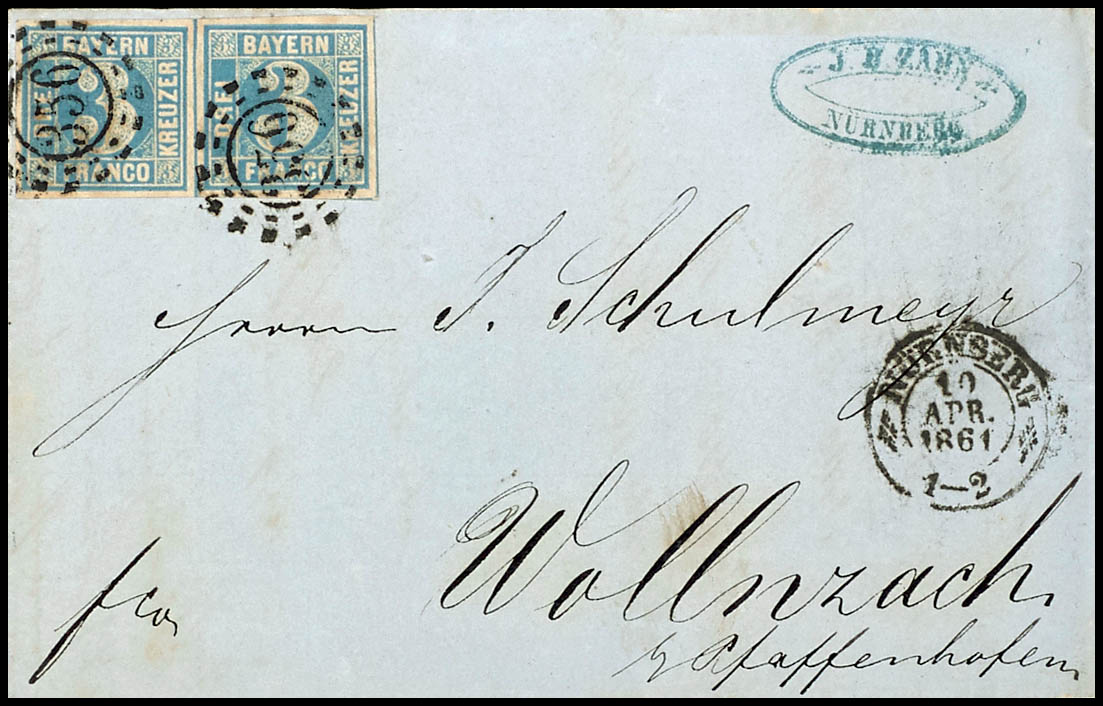 BAYERN
DREI
3
KREUZER
FRANCO
356
BAYERN
DREI
3
KREUZER
FRANCO
356
J H ZAHN
NÜRNBERG
Herrn J. Schulmeyr
NÜRNBERG
10
APR.
1861
1–2
Wollnzach
fco
b/ Pfaffenhofen